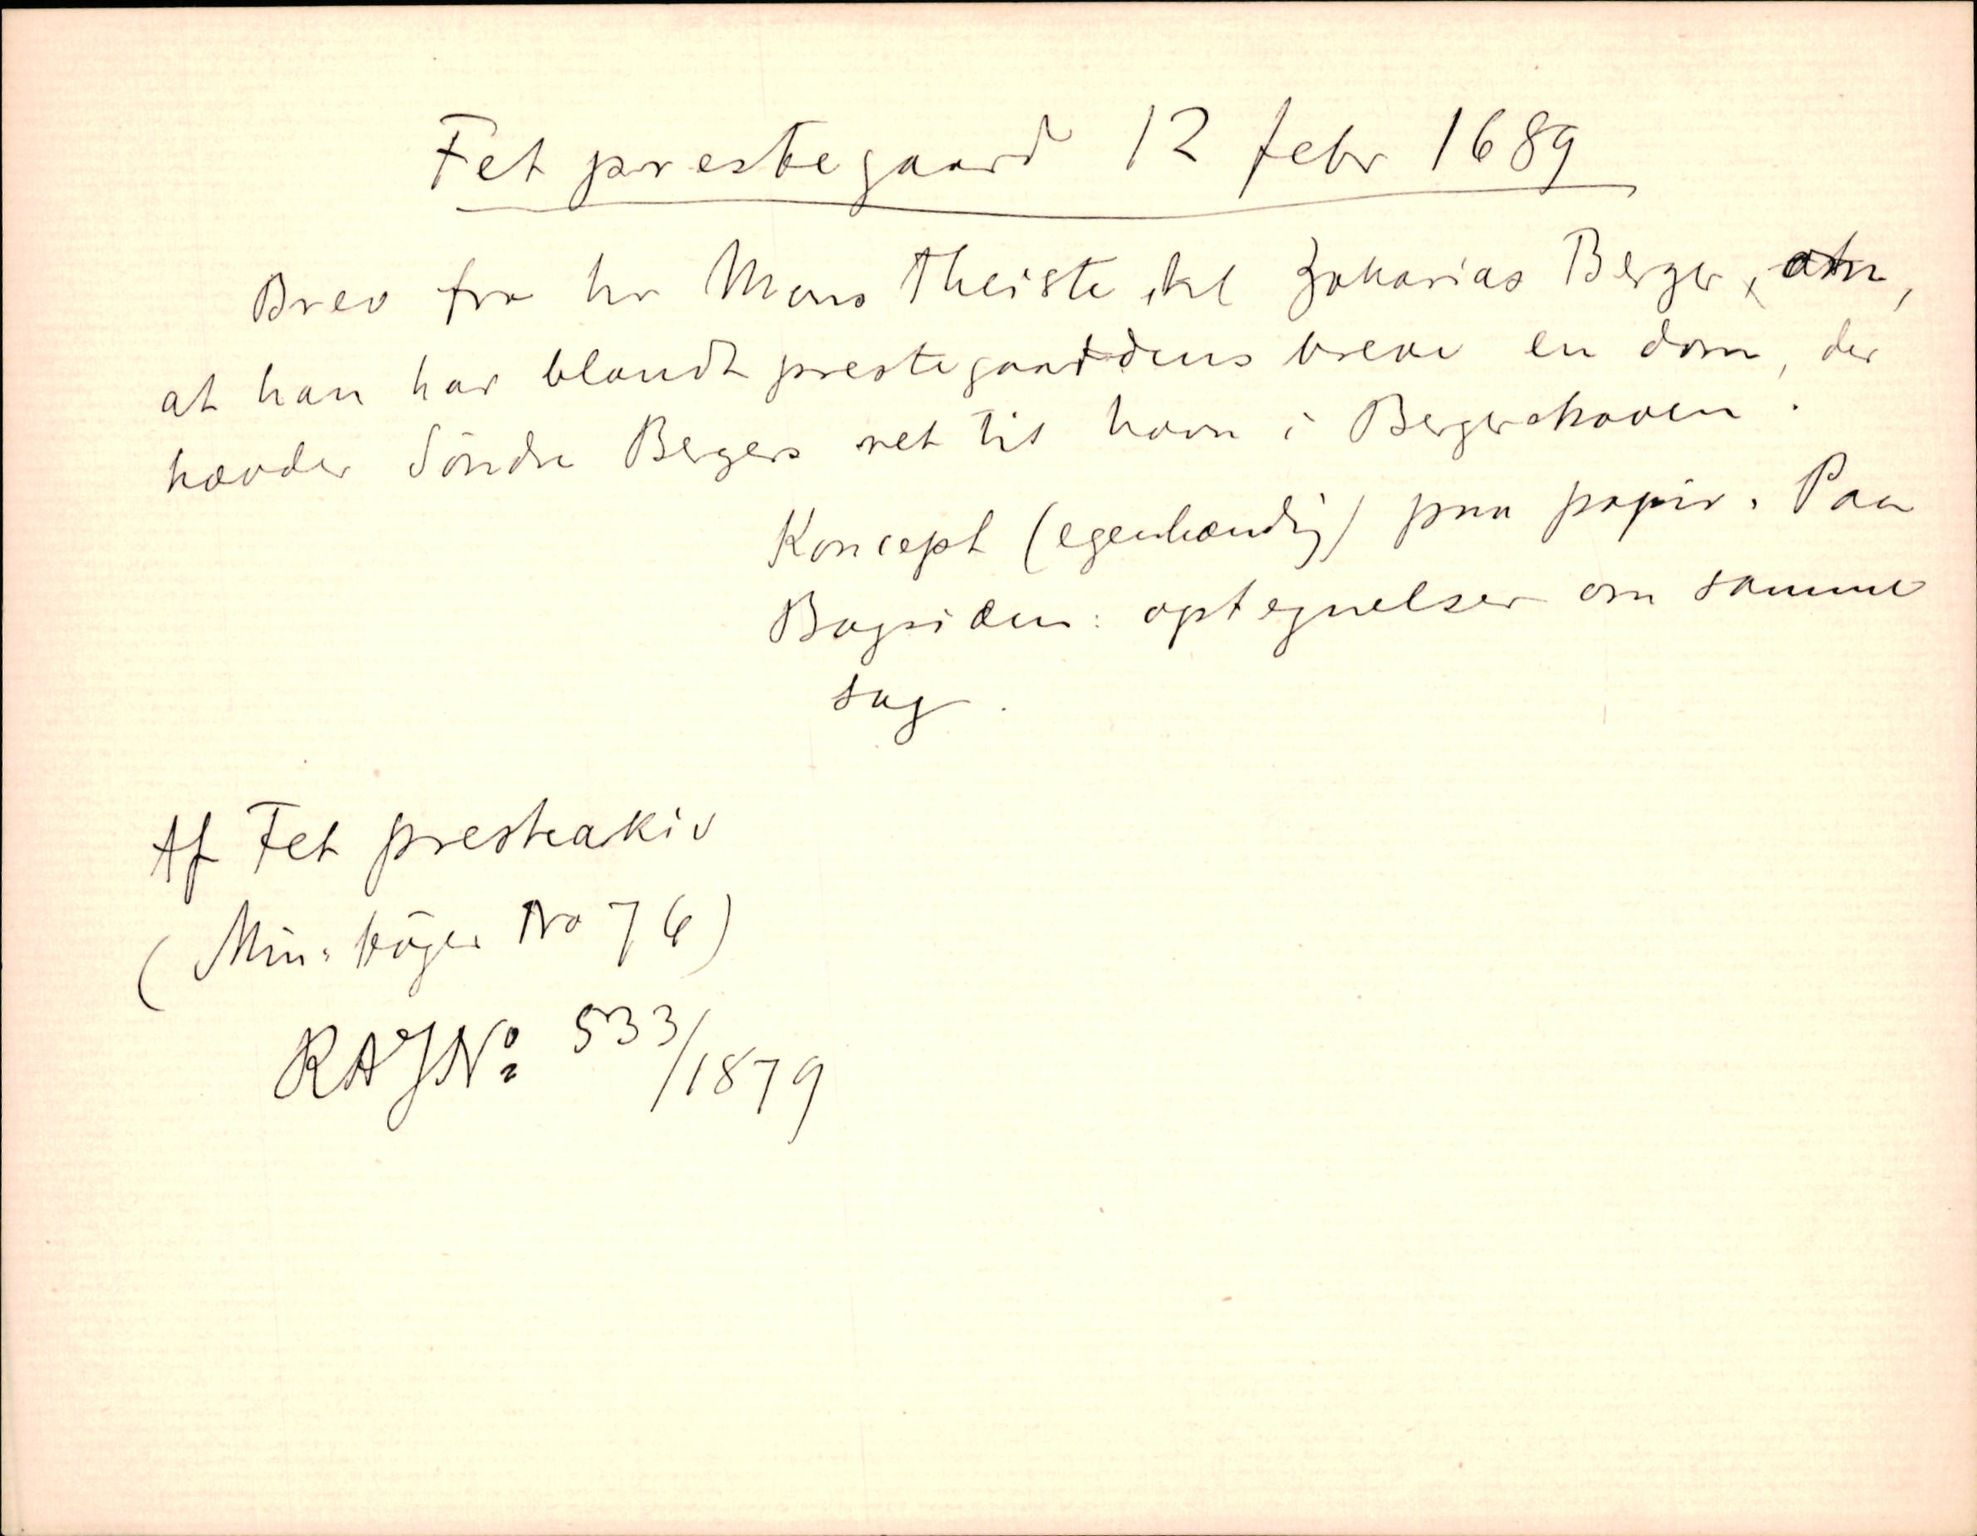 Fet prestegaard 12 febr 1689
Brev fra hr Mons Theiste til Zakarias Berger,
at han har blandt prestegaardens breve en dom, der
hævder Söndre Bergers ret til havn i Bergerskoven.
Koncept (egenhændig) paa papir. Paa
Bagsiden: optegnelser om samme
sag.
Af Fet prestearkiv
(Min. No 76)
RAJNo: 533/1879